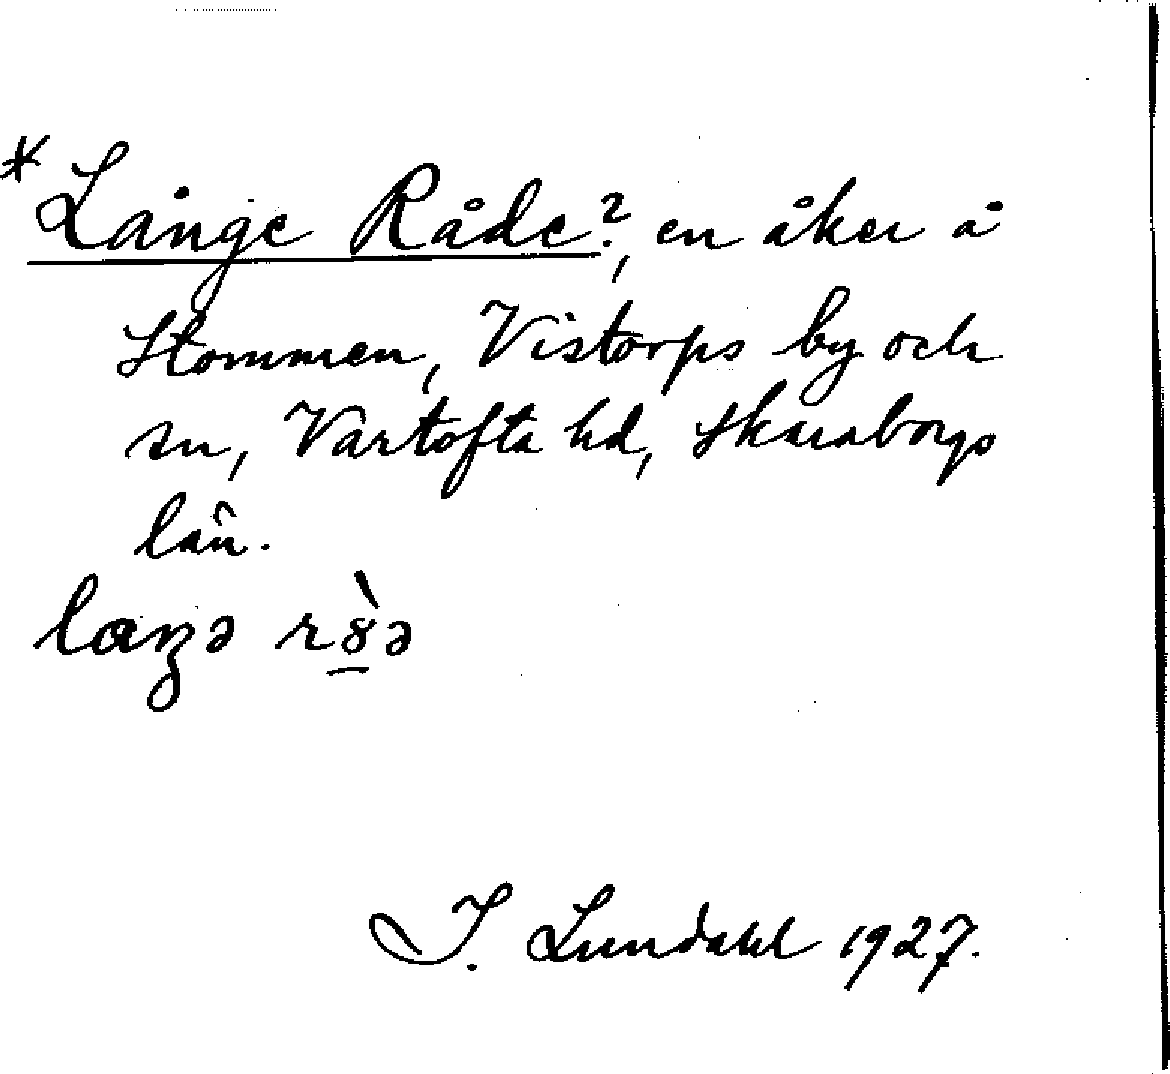 * Långe Råde?, en åker å
Stommen, Vistorps by och
sn, Vartofta hd, Skaraborgs
län.
laŋə r8̠̀ə
I. Lundahl 1927.